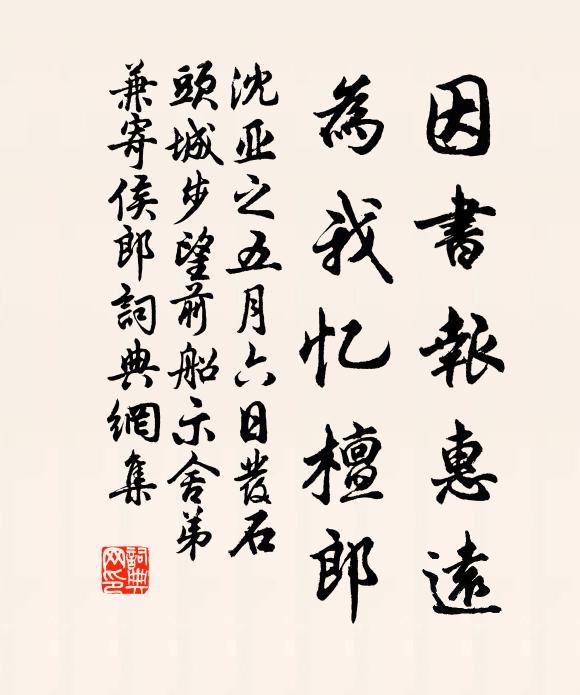 因書報惠遠
為我忆檀郎
沈亚之五月六日發石
頭城步望前船示舍弟
兼寄侯郎詞典網集
詞典网印